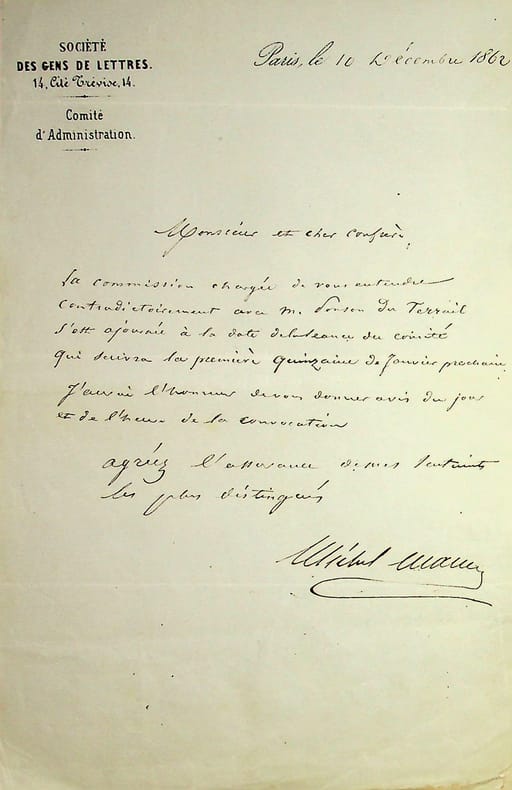 SOCIÉTÉ
DES GENS DE LETTRES.
14, Cité Trévise, 14.
Comité
d'Administration.
Paris, le 10 Décembre 1862
Monsieur et cher confrère,
La commission chargée de vous entendre
contradictoirement avec M. Ponson du Terrail
s'est ajournée à la date de la séance du comité
qui suivra la première quinzaine de Janvier prochain.
J'aurai l'honneur de vous donner avis du jour
et de l'heure de la convocation
agréez l'assurance de mes sentiments
les plus distingués
Michel Masson